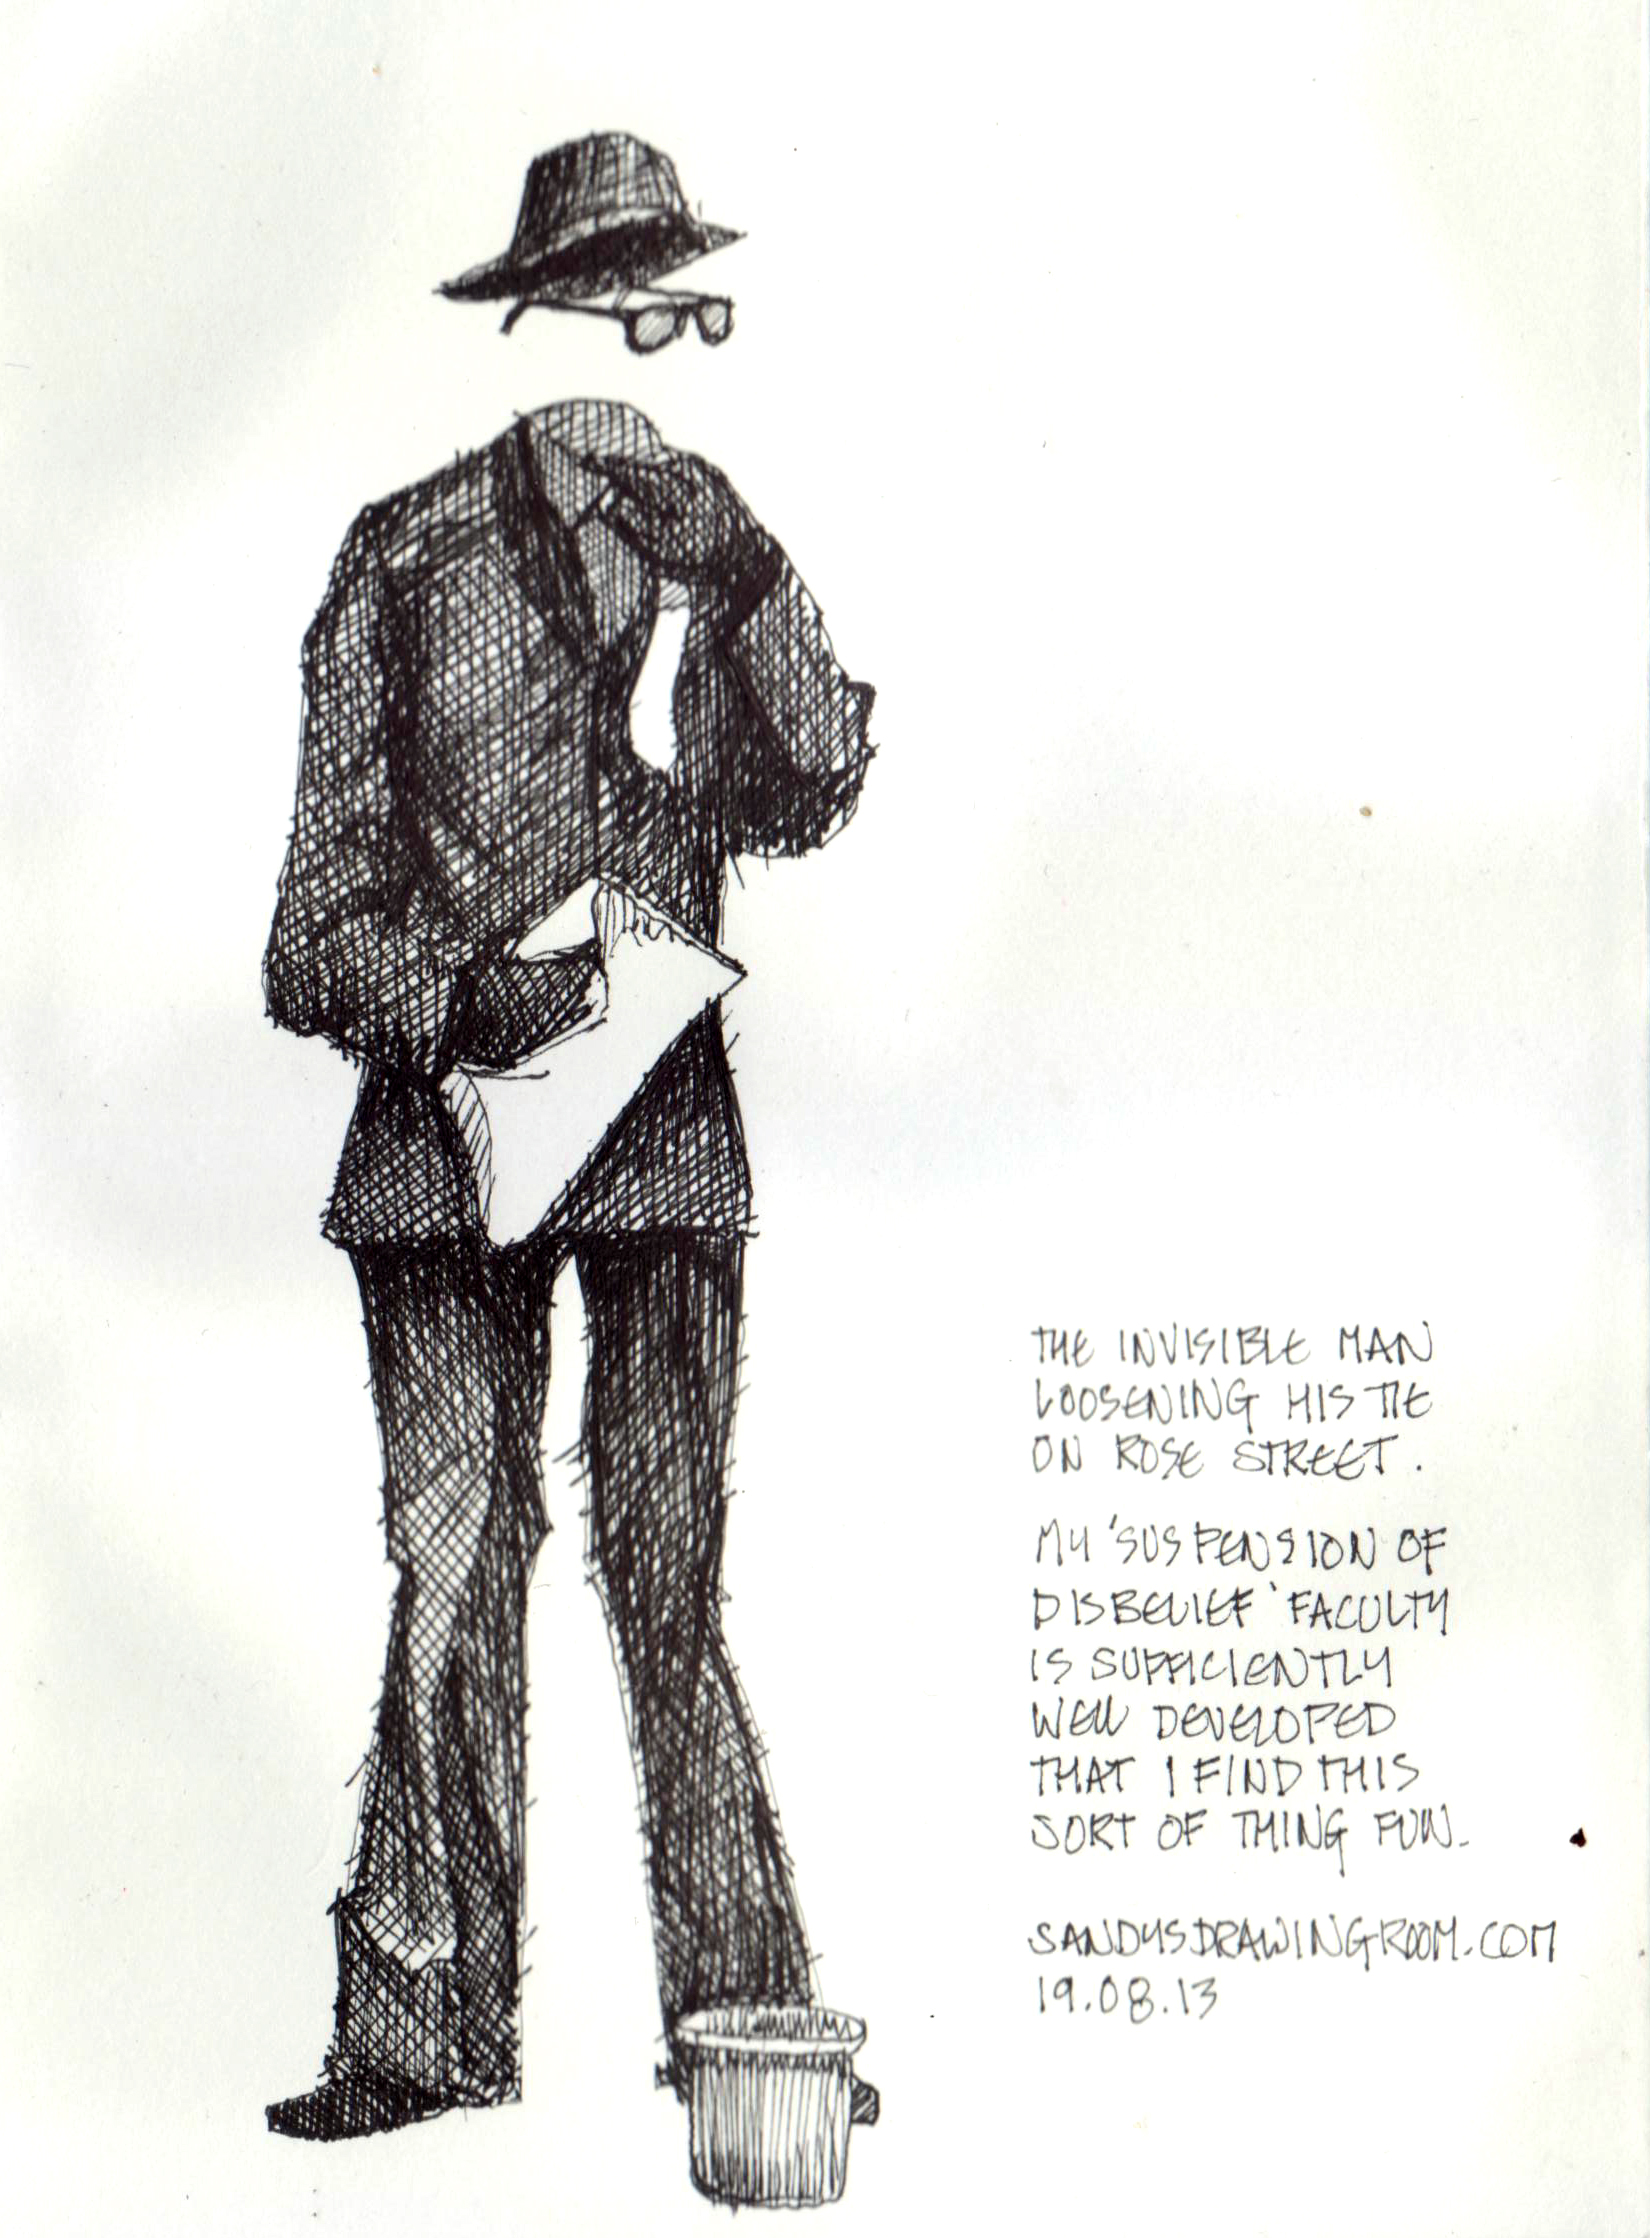 THE INVISIBLE MAN
LOOSENING HIS TIE
ON ROSE STREET.
MY 'SUSPENSION OF
DISBELIEF' FACULTY
IS SUFFICIENTLY
WELL DEVELOPED
THAT I FIND THIS
SORT OF THING FUN.
SANDYSDRAWINGROOM.COM
19.08.13